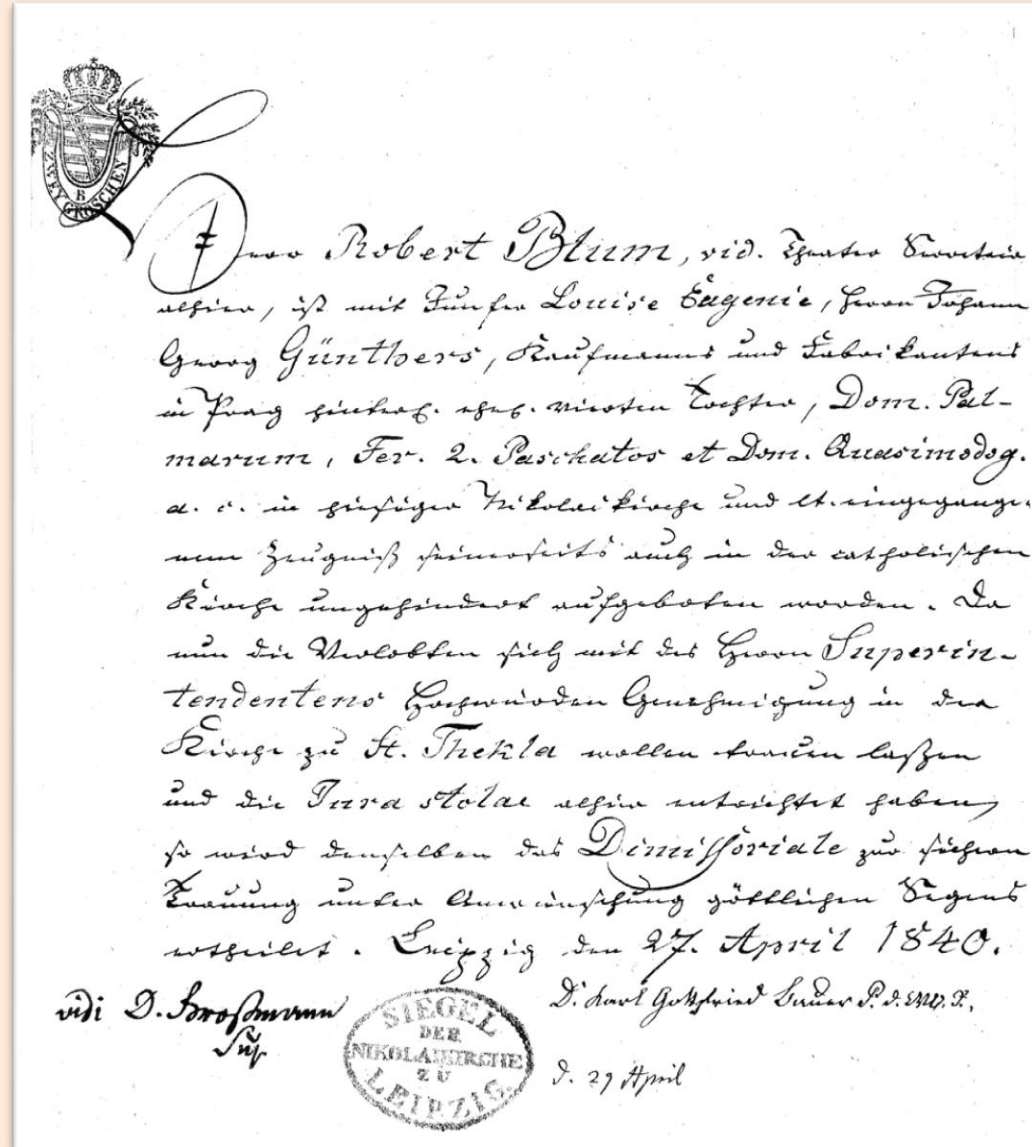 ZWEY GROSCHEN
B
Herr Robert Blum, vid. Theater Secretair
alhier, ist mit Junfer Louise Eugenie, Herrn Johann
Georg Günthers, Kaufmanns und Fabrikantens
in Prag hinterl. ehel. vierten Tochter, Dom. Pal-
marum, Fer. 2. Paschatos et Dom. Quasimodog.
a. c. in hiesiger Nikolaikirche und lt. eingegange-
nem Zeugniß seinerseits auch in der catholischen
Kirche ungehindert aufgeboten worden. Da
nun die Verlobten sich mit des Herrn Superin-
tendentens Hochwürden Genehmigung in der
Kirche zu St. Thekla wollen trauen laßen
und die Jura stolae alhier entrichtet haben,
so wird denselben das Dimissoriale zur
Trauung unter Anwünschung göttlichen Segens
ertheilet. Leipzig den 27. April 1840.
vidi D. Großmann
Sup.
SIEGEL
DER
NIKOLAIKIRCHE
ZU
LEIPZIG.
D. Karl Gottfried Bauer P.
d. 29 April